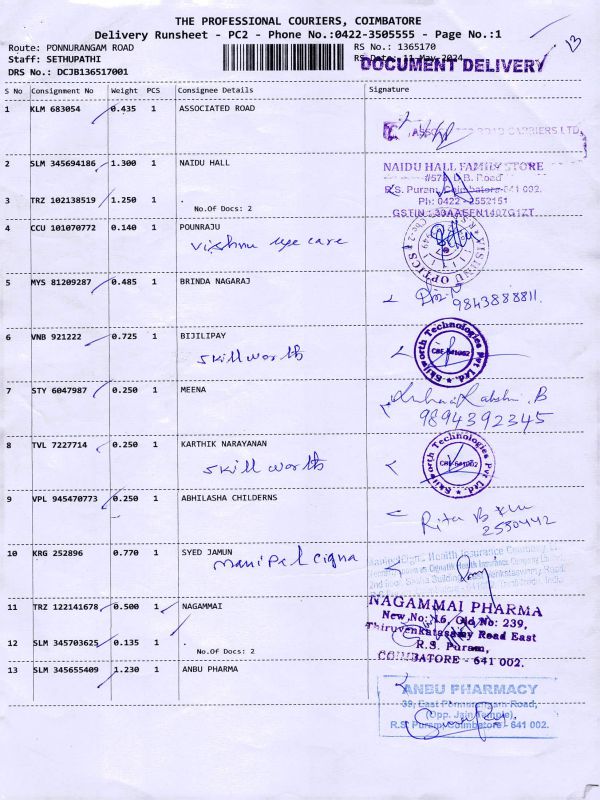 THE PROFESSIONAL COURIERS, COIMBATORE
Delivery Runsheet - PC2 - Phone No.:0422-3505555 - Page No.:1
13
Route: PONNURANGAM ROAD
Staff: SETHUPATHI
DRS No.: DCJB136517001
RS No.: 1365170
RS Date: 11 May 2024
DOCUMENT DELIVERY
S No Consignment No Weight PCS Consignee Details Signature
1 KLM 683054 0.435 1 ASSOCIATED ROAD
ASSOCIATED ROAD CARRIERS LTD.
2 SLM 345694186 1.300 1 NAIDU HALL
NAIDU HALL FAMILY STORE
D.B. Road
R.S. Puram, Coimbatore-641 002.
Ph: 0422 - 2552151
3 TRZ 102138519 1.250 1
No.Of Docs: 2
4 CCU 101070772 0.140 1 POUNRAJU
Vishnu eye care
VISHNU OPTICS
5 MYS 81209287 0.485 1 BRINDA NAGARAJ
9843888811.
6 VNB 921222 0.725 1 BIJILIPAY
Skillworth
Skillworth Technologies Pvt Ltd.
CBE-641002
7 STY 6047987 0.250 1 MEENA
9894392345
8 TVL 7227714 0.250 1 KARTHIK NARAYANAN
Skillworth
Skillworth Technologies Pvt Ltd.
CBE-641002
9 VPL 945470773 0.250 1 ABHILASHA CHILDERNS
2550442
10 KRG 252896 0.770 1 SYED JAMUN
manipal cigna
ManipalCigna Health Insurance Company
11 TRZ 122141678 0.500 1 NAGAMMAI
NAGAMMAI PHARMA
New No: 16, Old No: 239,
Thiruvenkatasamy Road East
R.S. Puram,
COIMBATORE - 641 002.
12 SLM 345703625 0.135 1
No.Of Docs: 2
13 SLM 345655409 1.230 1 ANBU PHARMA
ANBU PHARMACY
39, East Ponnurangam Road,
(Opp. Jain Temple),
R.S. Puram, Coimbatore - 641 002.